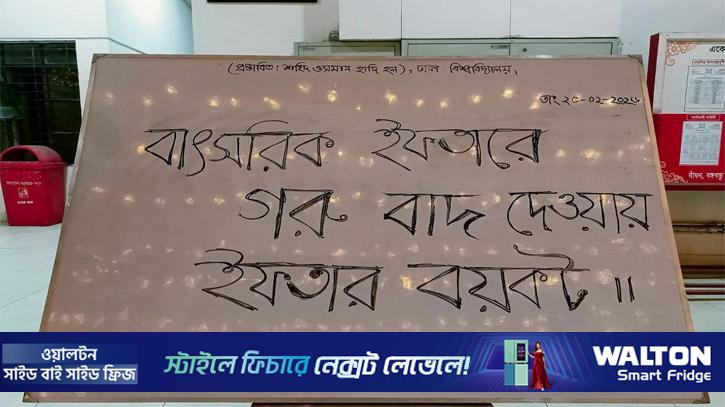 (প্রস্তাবিত: শহিদ ওসমান হাদি হল), ঢাকা বিশ্ববিদ্যালয়।
তাং ২৫-০২-২০২৬
বাৎসরিক ইফতারে
গরু বাদ দেওয়ায়
ইফতার বয়কট॥
বাঁধন, বঙ্গবন্ধু
ওয়ালটন
সাইড বাই সাইড ফ্রিজ
স্টাইলে ফিচারে নেক্সট লেভেলে!
WALTON
Smart Fridge